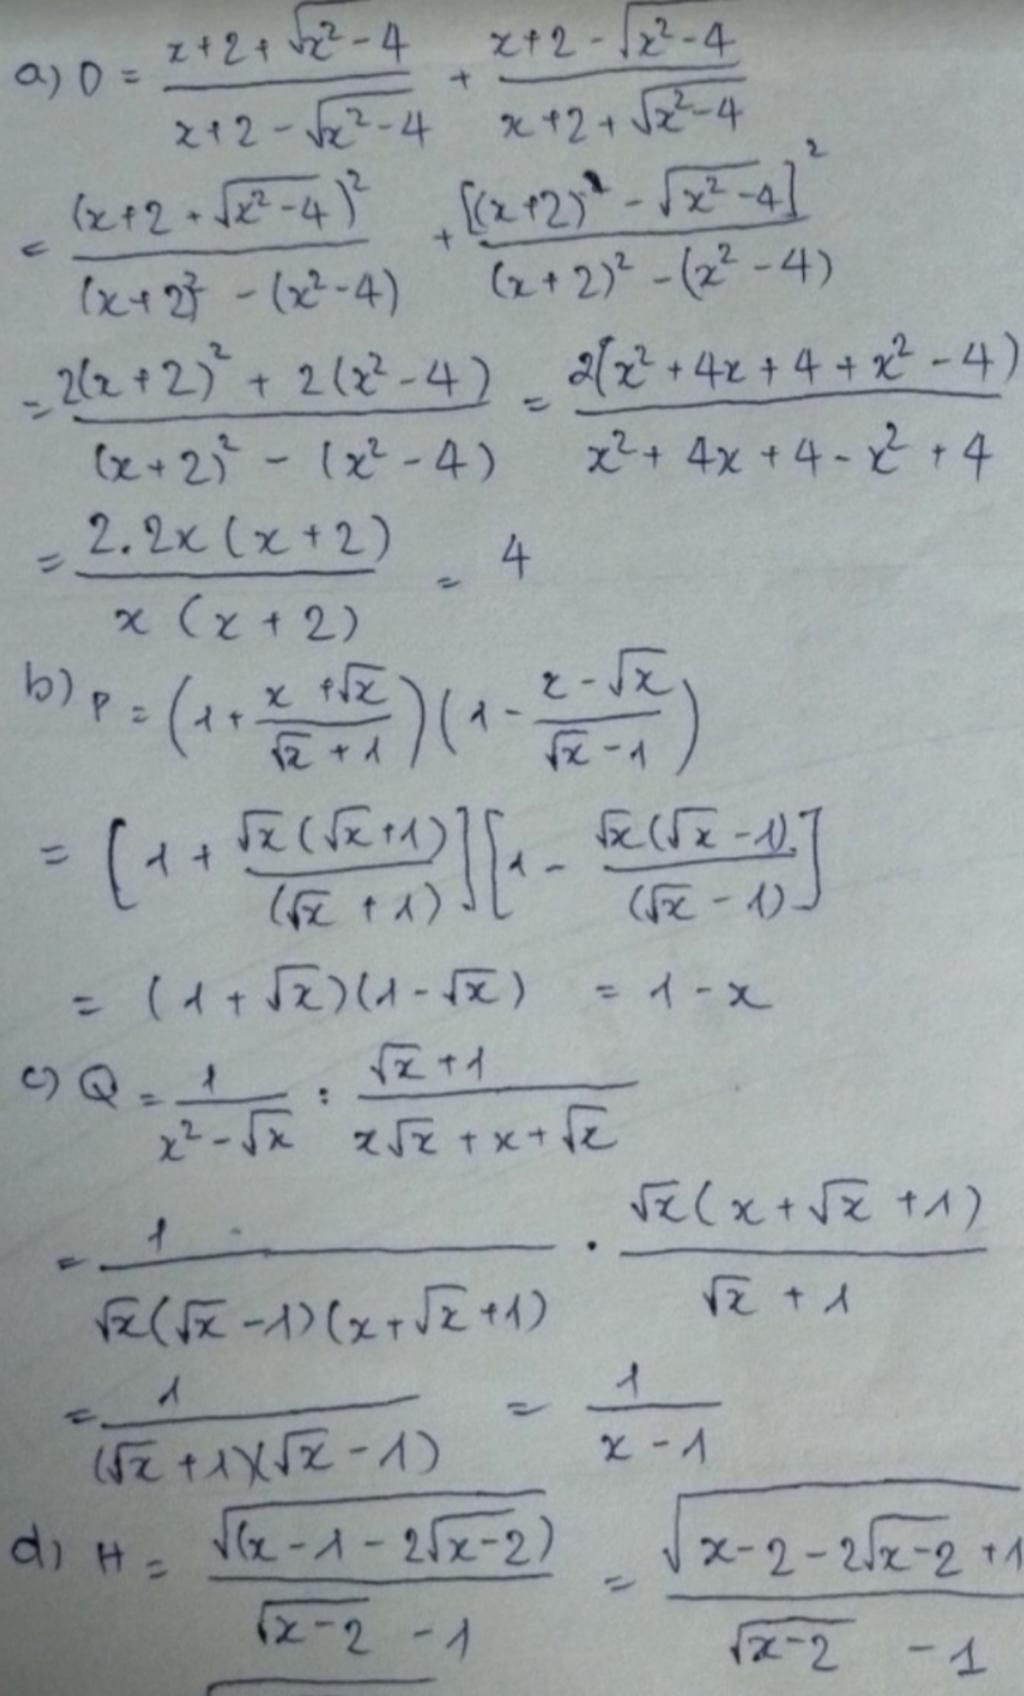 a) D = \frac{x+2+\sqrt{x^2-4}}{x+2-\sqrt{x^2-4}} + \frac{x+2-\sqrt{x^2-4}}{x+2+\sqrt{x^2-4}}
= \frac{(x+2+\sqrt{x^2-4})^2}{(x+2)^2-(x^2-4)} + \frac{[(x+2)-\sqrt{x^2-4}]^2}{(x+2)^2-(x^2-4)}
= \frac{2(x+2)^2+2(x^2-4)}{(x+2)^2-(x^2-4)} = \frac{2(x^2+4x+4+x^2-4)}{x^2+4x+4-x^2+4}
= \frac{2.2x(x+2)}{x(x+2)} = 4
b) P = (1+\frac{x+\sqrt{x}}{\sqrt{x}+1})(1-\frac{x-\sqrt{x}}{\sqrt{x}-1})
= [1+\frac{\sqrt{x}(\sqrt{x}+1)}{(\sqrt{x}+1)}][1-\frac{\sqrt{x}(\sqrt{x}-1)}{(\sqrt{x}-1)}]
= (1+\sqrt{x})(1-\sqrt{x}) = 1-x
c) Q = \frac{1}{x^2-\sqrt{x}} : \frac{\sqrt{x}+1}{x\sqrt{x}+x+\sqrt{x}}
= \frac{1}{\sqrt{x}(\sqrt{x}-1)(x+\sqrt{x}+1)} . \frac{\sqrt{x}(x+\sqrt{x}+1)}{\sqrt{x}+1}
= \frac{1}{(\sqrt{x}+1)(\sqrt{x}-1)} = \frac{1}{x-1}
d) H = \frac{\sqrt{(x-1-2\sqrt{x-2})}}{\sqrt{x-2}-1} = \frac{\sqrt{x-2-2\sqrt{x-2}+1}}{\sqrt{x-2}-1}